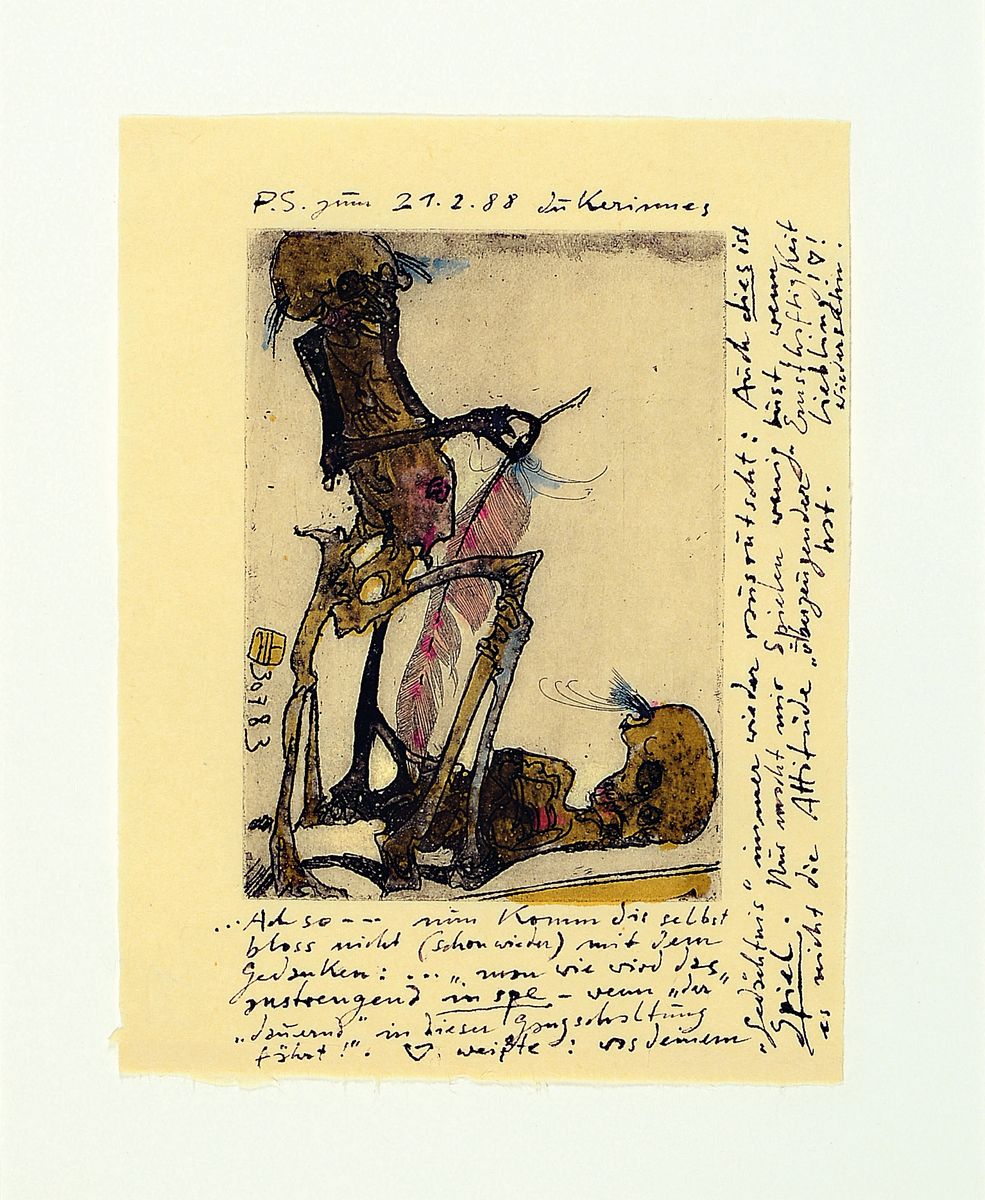 P.S. zum 21.2.88 du Kerinnes
30783
... Ach so --- nun komm dir selbst
bloss nicht (schon wieder) mit dem
Gedanken: ... "man wie wird das
anstrengend in spe - wenn "der"
"dauernd" in dieser Gangschaltung
fährt!". weißte: was deinem
"Gedächtnis" immer wieder rausrutscht: Auch dies ist
Spiel. Nur macht mir Spielen wenig Lust wenn
es nicht die Attitüde "überzeugender" Ernsthaftigkeit
hat. Liebling!
Wiedersehn.